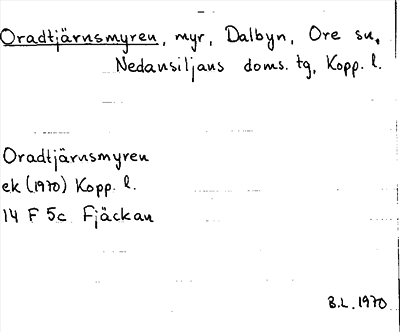 Oradtjärnsmyren, myr, Dalbyn, Ore sn,
Nedansiljans doms. tg, Kopp. l.
Oradtjärnsmyren
ek (1970) Kopp. l.
14 F 5c Fjäckan
B.L. 1970